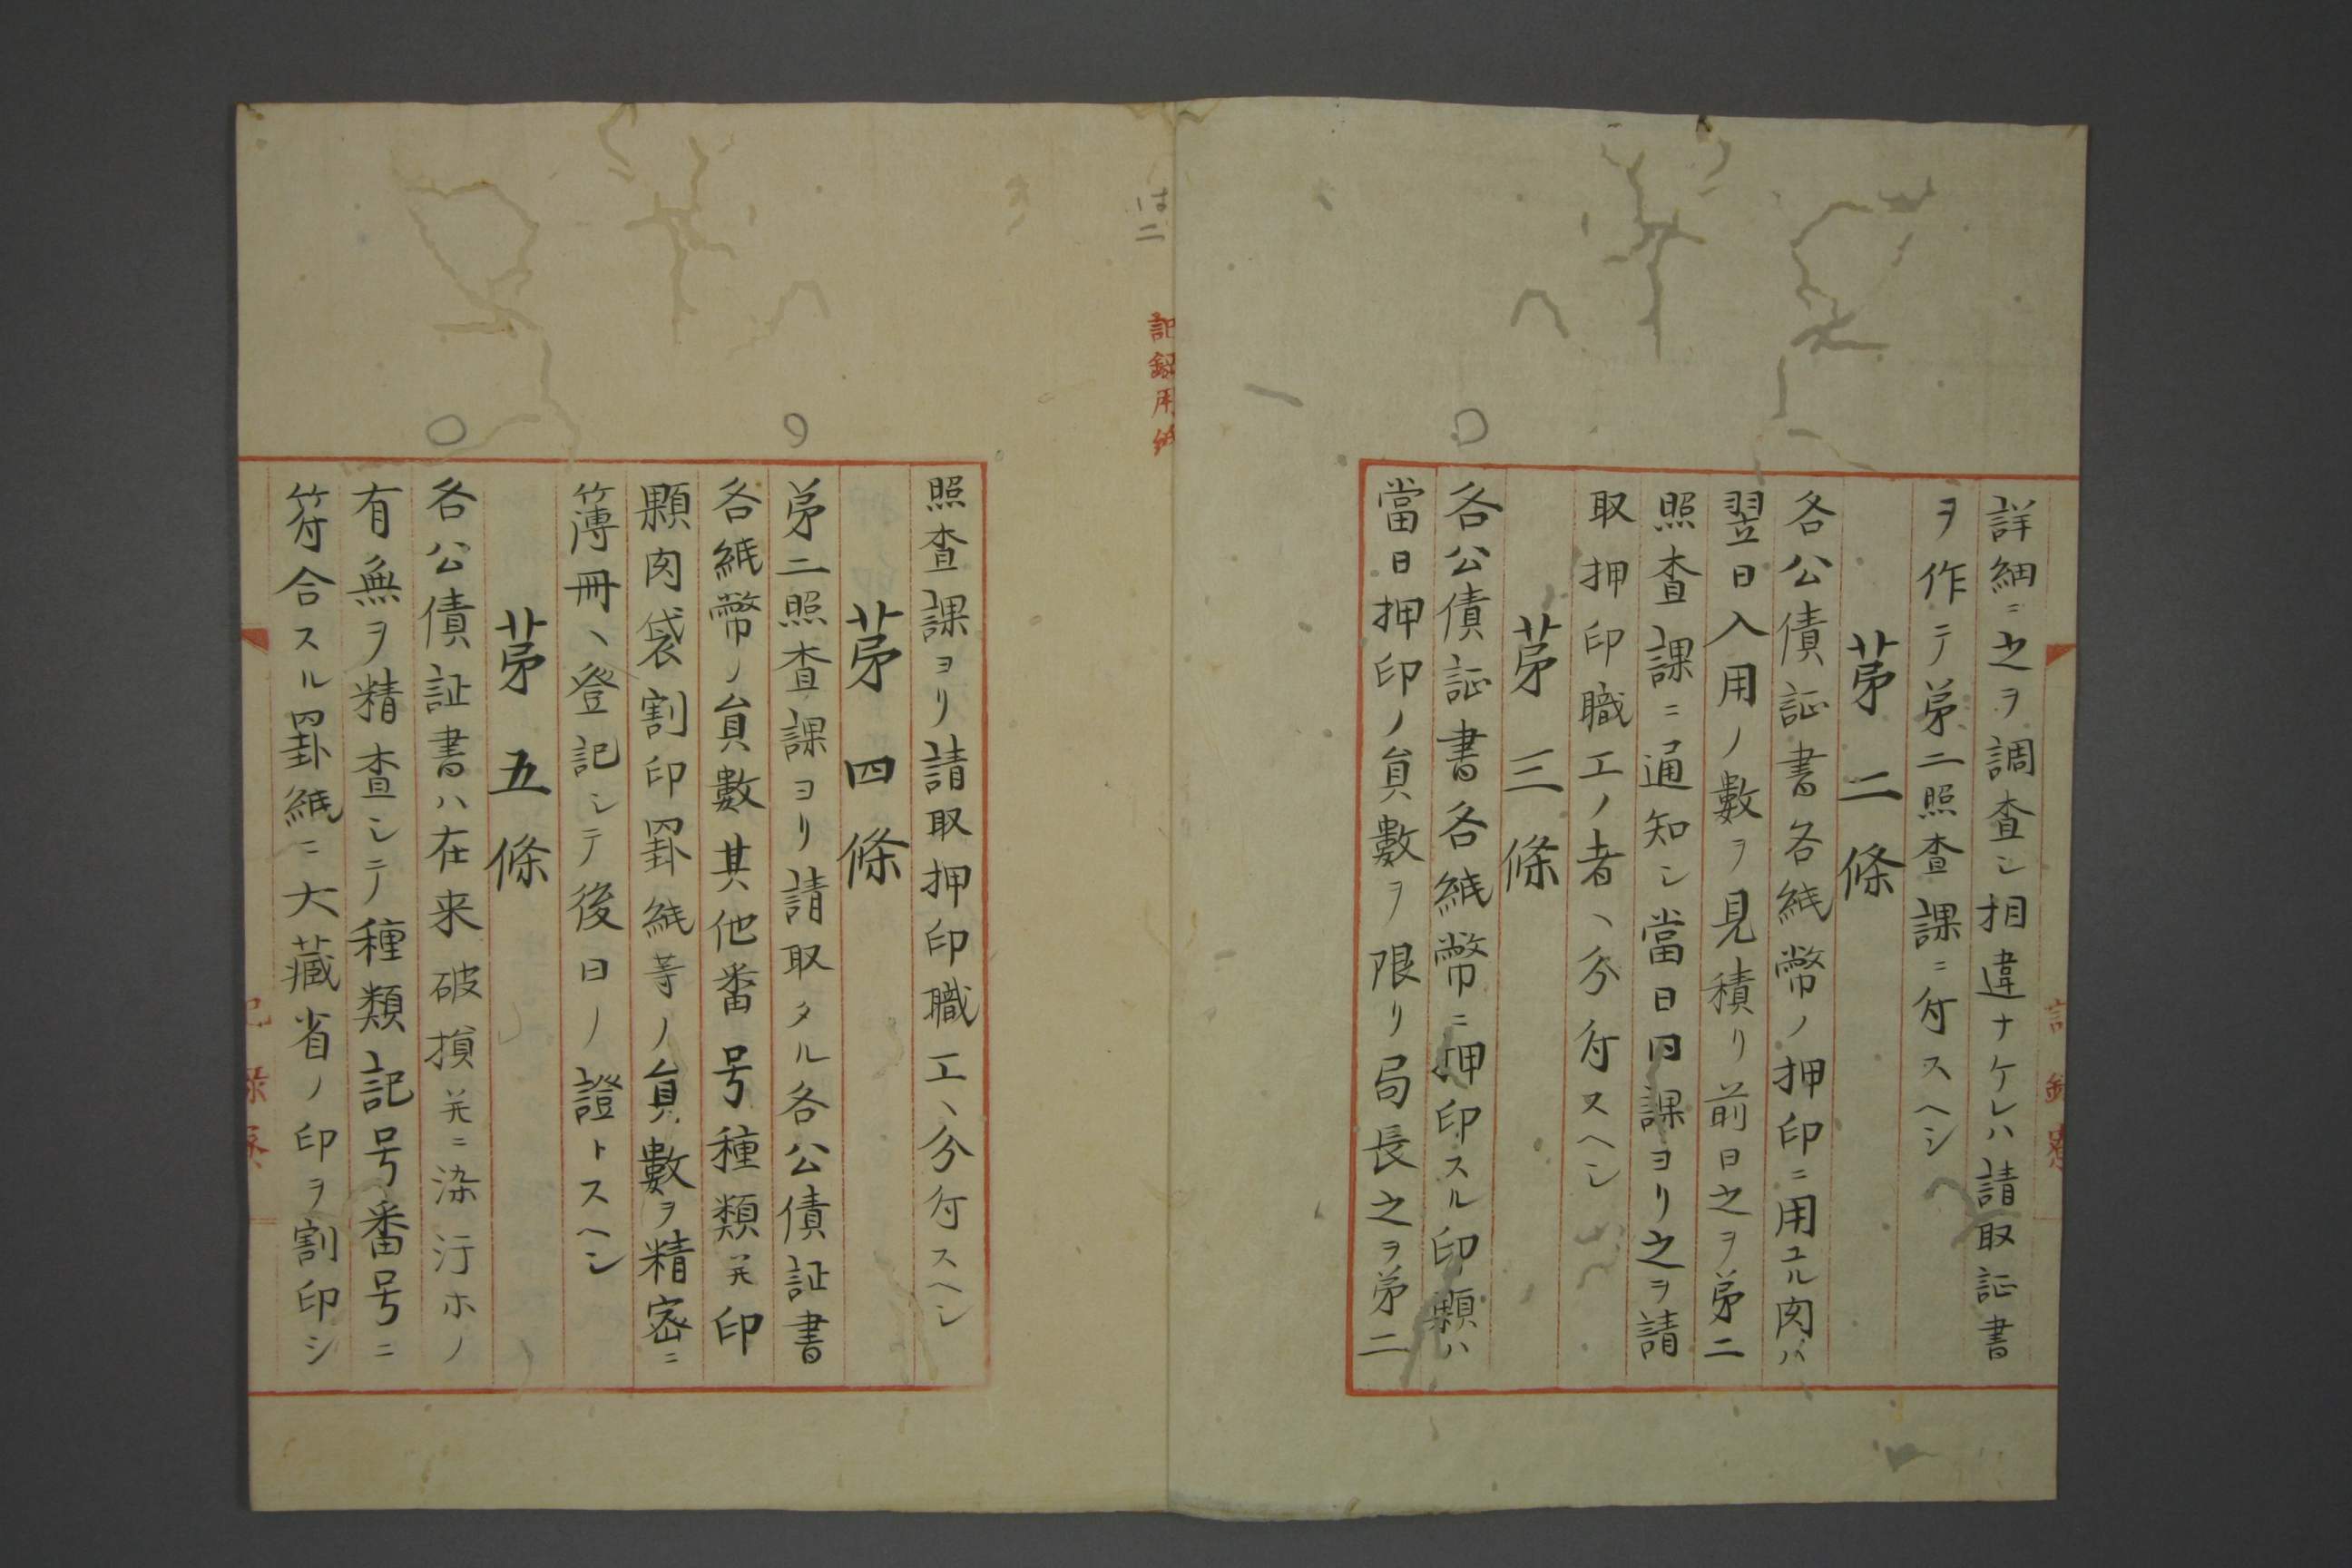 詳細ニ之ヲ調査シ相違ナケレハ請取証書
ヲ作テ第二照査課ニ付スヘシ
第二條
各公債証書各紙幣ノ押印ニ用ユル肉ハ
翌日入用ノ數ヲ見積リ前日之ヲ第二
照査課ニ通知シ當日同課ヨリ之ヲ請
取押印職工ノ者ヘ分付スヘシ
第三條
各公債証書各紙幣ニ押印スル印顆ハ
當日押印ノ員數ヲ限リ局長之ヲ第二
は二
記録用紙
照査課ヨリ請取押印職工ヘ分付スヘシ
第四條
第二照査課ヨリ請取タル各公債証書
各紙幣ノ員數其他番号種類并印
顆肉袋割印罫紙等ノ員數ヲ精密ニ
簿冊ヘ登記シテ後日ノ證トスヘシ
第五條
各公債証書ハ在来破損并ニ染汚ホノ
有無ヲ精査シテ種類記号番号ニ
符合スル罫紙ニ大藏省ノ印ヲ割印シ